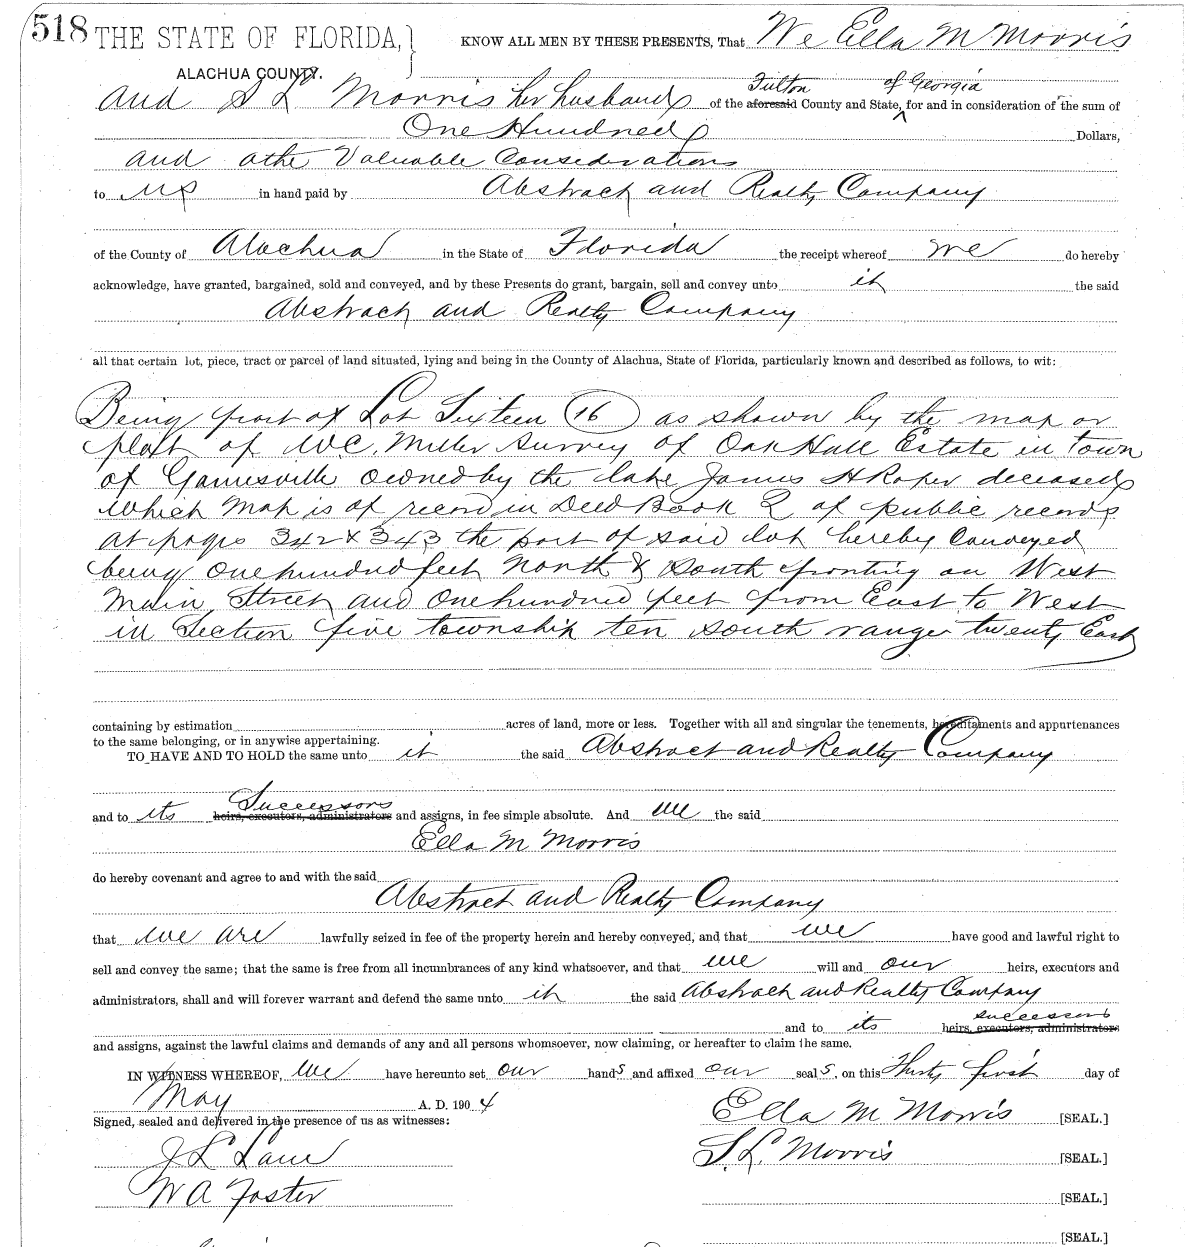 518 THE STATE OF FLORIDA,
ALACHUA COUNTY.
KNOW ALL MEN BY THESE PRESENTS, That We Ella M Morris
Fulton of Georgia
and S L Morris her husband of the aforesaid County and State, for and in consideration of the sum of
One Hundred Dollars,
and othe Valuable Considerations
to us in hand paid by Abstract and Realty Company
of the County of Alachua in the State of Florida the receipt whereof we do hereby
acknowledge, have granted, bargained, sold and conveyed, and by these Presents do grant, bargain, sell and convey unto it the said
Abstract and Realty Company
all that certain lot, piece, tract or parcel of land situated, lying and being in the County of Alachua, State of Florida, particularly known and described as follows, to wit:
Being part of Lot Sixteen (16) as shown by the map or
plat of W.C. Miller Survey of Oak Hall Estate in town
of Gainesville owned by the late James H Roper deceased
which Map is of record in Deed Book Q of public records
at pages 342 & 343 the part of said lot hereby Conveyed
being one hundred feet North & South fronting on West
Main Street and one hundred feet from East to West
in Section five township ten south range twenty East
containing by estimation acres of land, more or less. Together with all and singular the tenements, hereditaments and appurtenances
to the same belonging, or in anywise appertaining.
TO HAVE AND TO HOLD the same unto it the said Abstract and Realty Company
Successors
and to its heirs, executors, administrators and assigns, in fee simple absolute. And we the said
Ella M Morris
do hereby covenant and agree to and with the said
Abstract and Realty Company
that we are lawfully seized in fee of the property herein and hereby conveyed, and that we have good and lawful right to
sell and convey the same; that the same is free from all incumbrances of any kind whatsoever, and that we will and our heirs, executors and
administrators, shall and will forever warrant and defend the same unto it the said Abstract and Realty Company
successors
and to its heirs, executors, administrators
and assigns, against the lawful claims and demands of any and all persons whomsoever, now claiming, or hereafter to claim the same.
IN WITNESS WHEREOF, we have hereunto set our hands and affixed our seals, on this Thirty first day of
May A. D. 1904
Signed, sealed and delivered in the presence of us as witnesses:
Ella M Morris [SEAL.]
J L Lane
S. L. Morris [SEAL.]
W A Foster
[SEAL.]
[SEAL.]